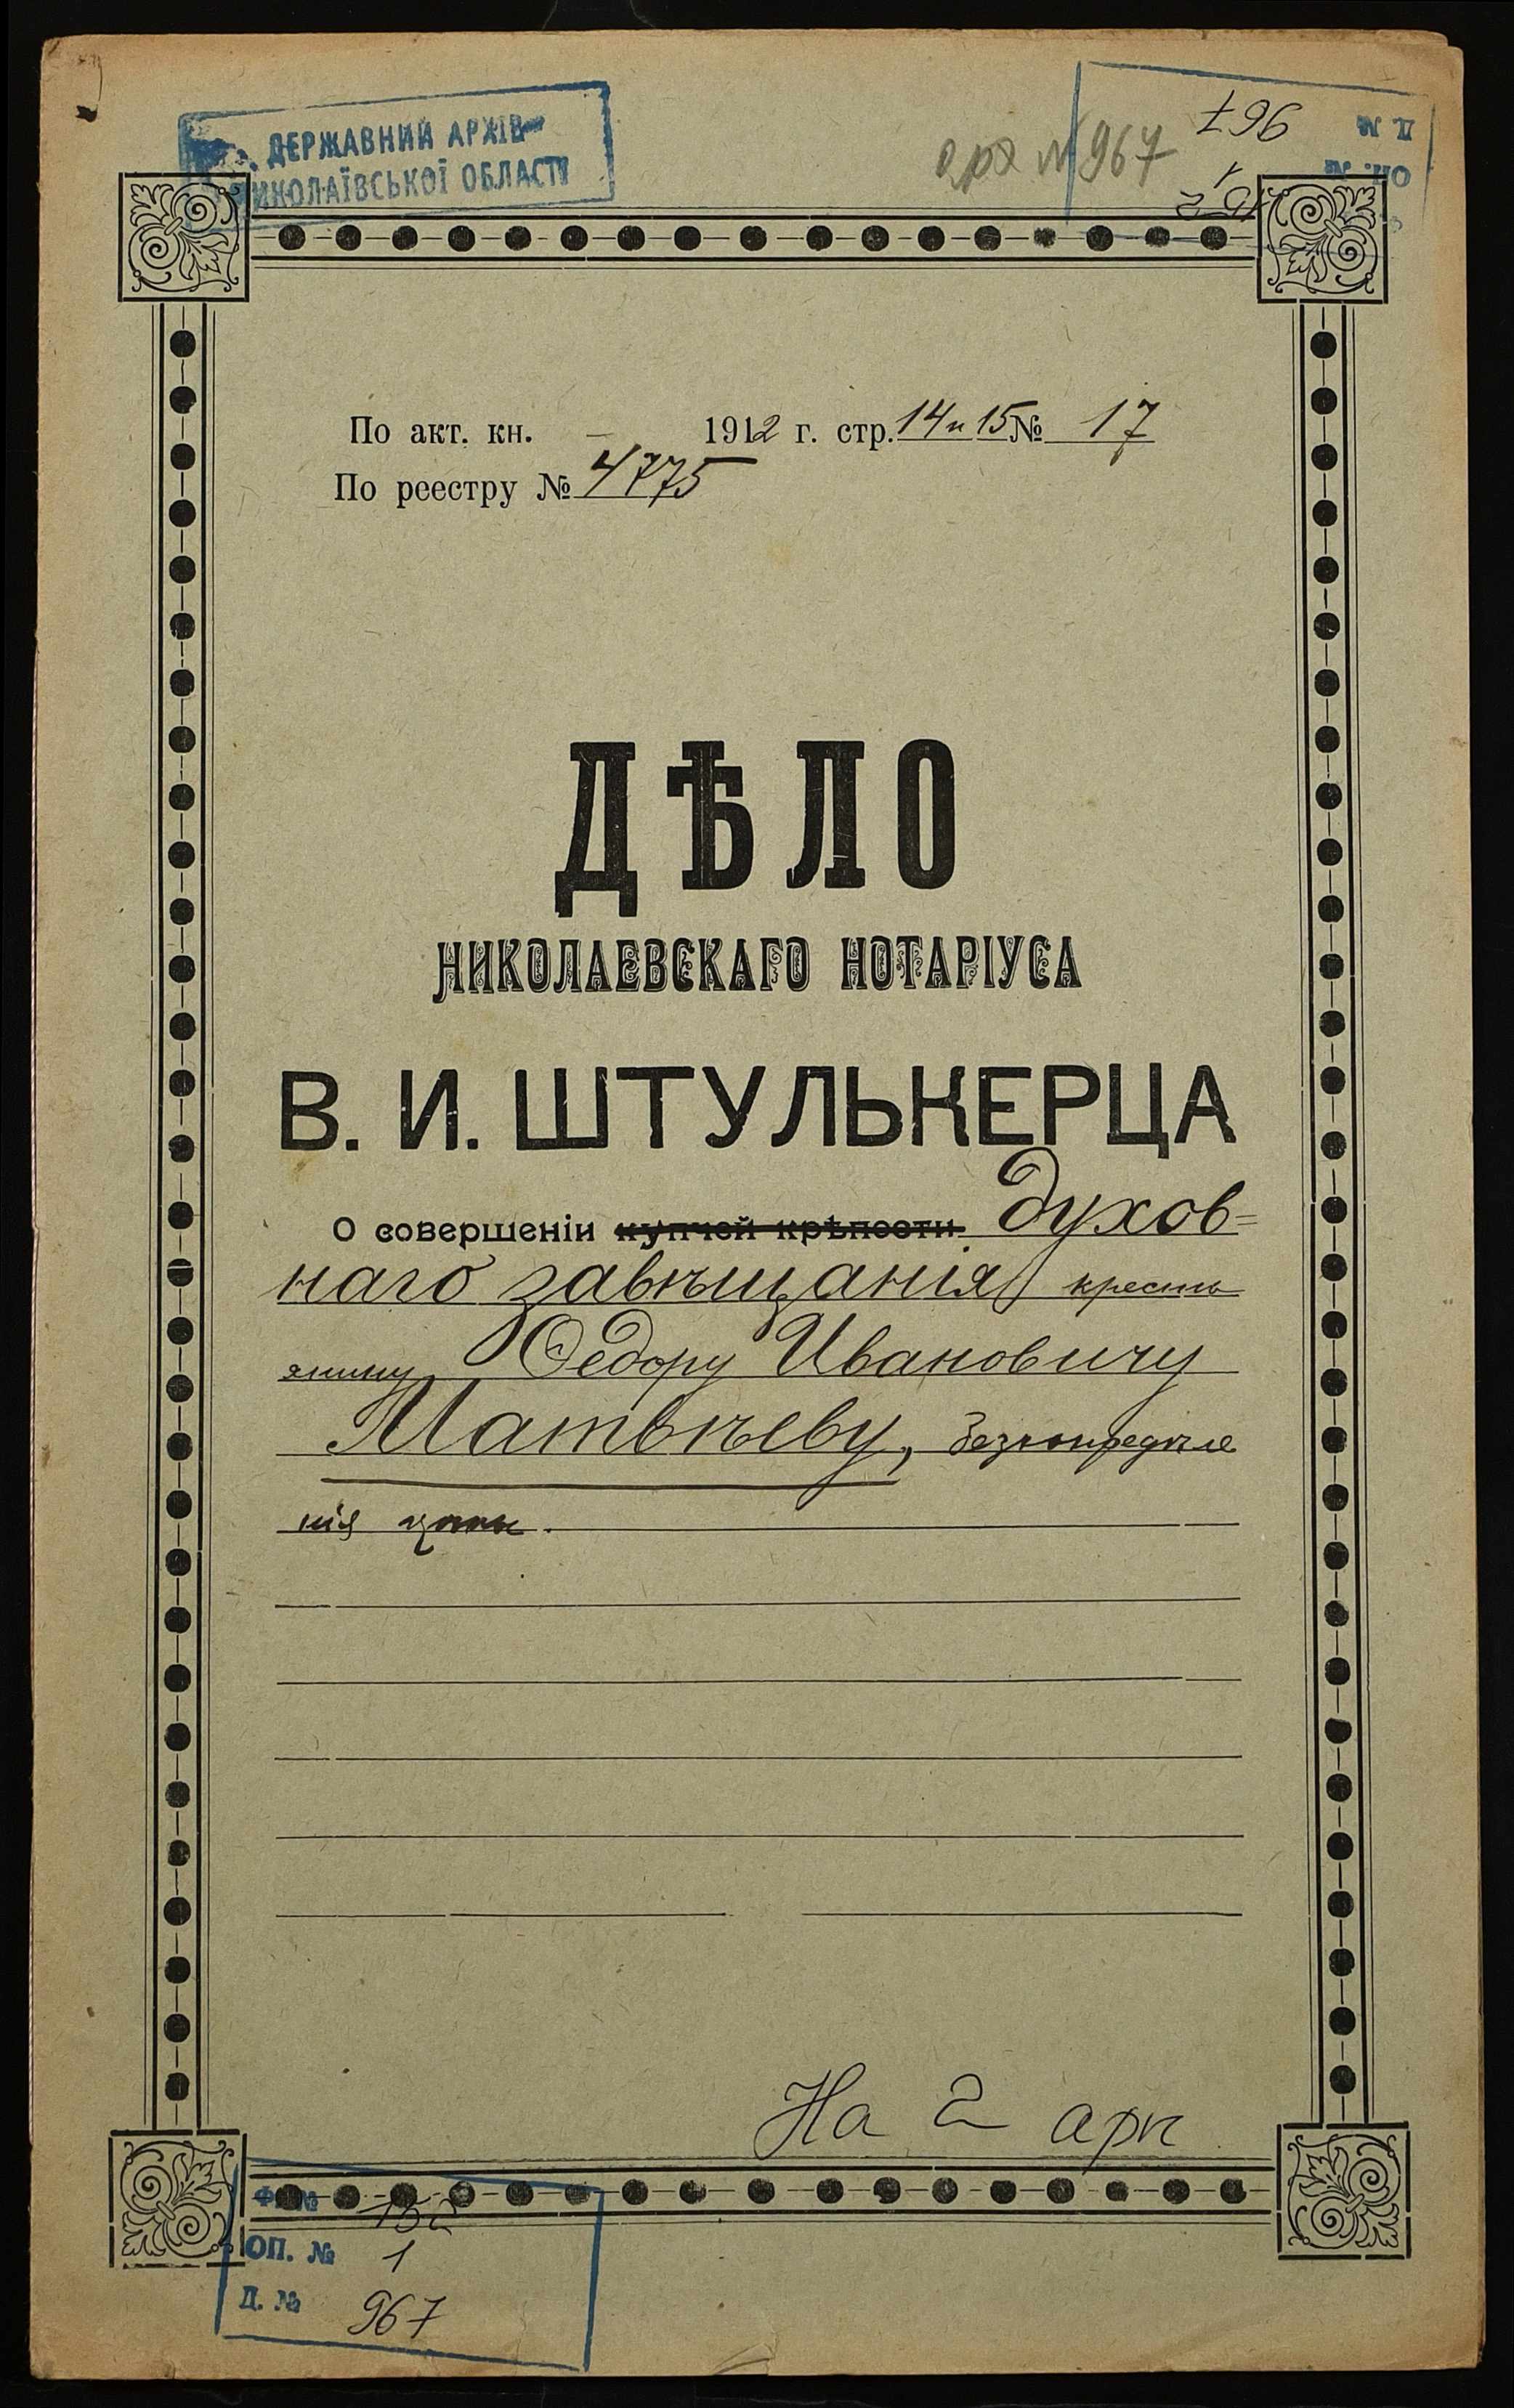 ДЕРЖАВНИЙ АРХІВ
МИКОЛАЇВСЬКОЇ ОБЛАСТІ
арх № 967
Д. № 967
ОП. № 1
152
По акт. кн. — 1912 г. стр. 14 и 15 № 17
По реестру № 4775
ДѢЛО
НИКОЛАЕВСКАГО НОТАРІУСА
В. И. ШТУЛЬКЕРЦА
О совершеніи купчей крѣпости Духов=
наго завѣщанія кресть
янину Ѳедору Ивановичу
Матвѣеву, безъ опредѣле
нія цѣны.
На 2 арк
Ф. № 152
ОП. № 1
Д. № 967